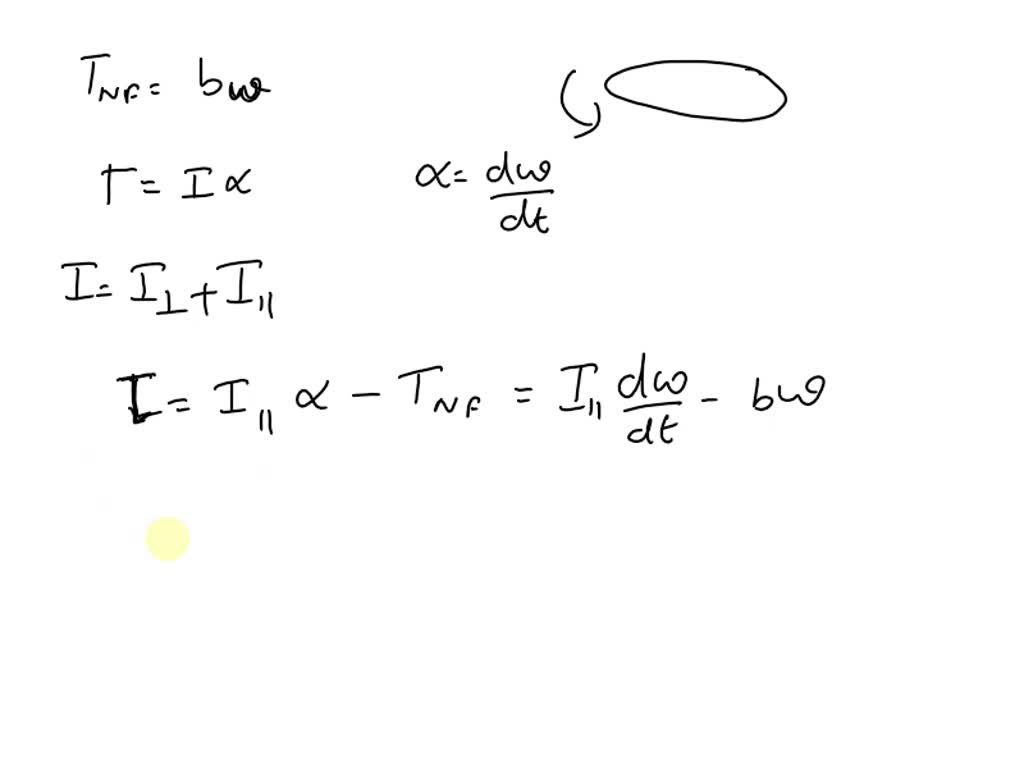 T_NF = bω
τ = I α
α = dω/dt
I = I⊥ + I_∥
I = I_∥ α − T_NF = I_∥ dω/dt − bω